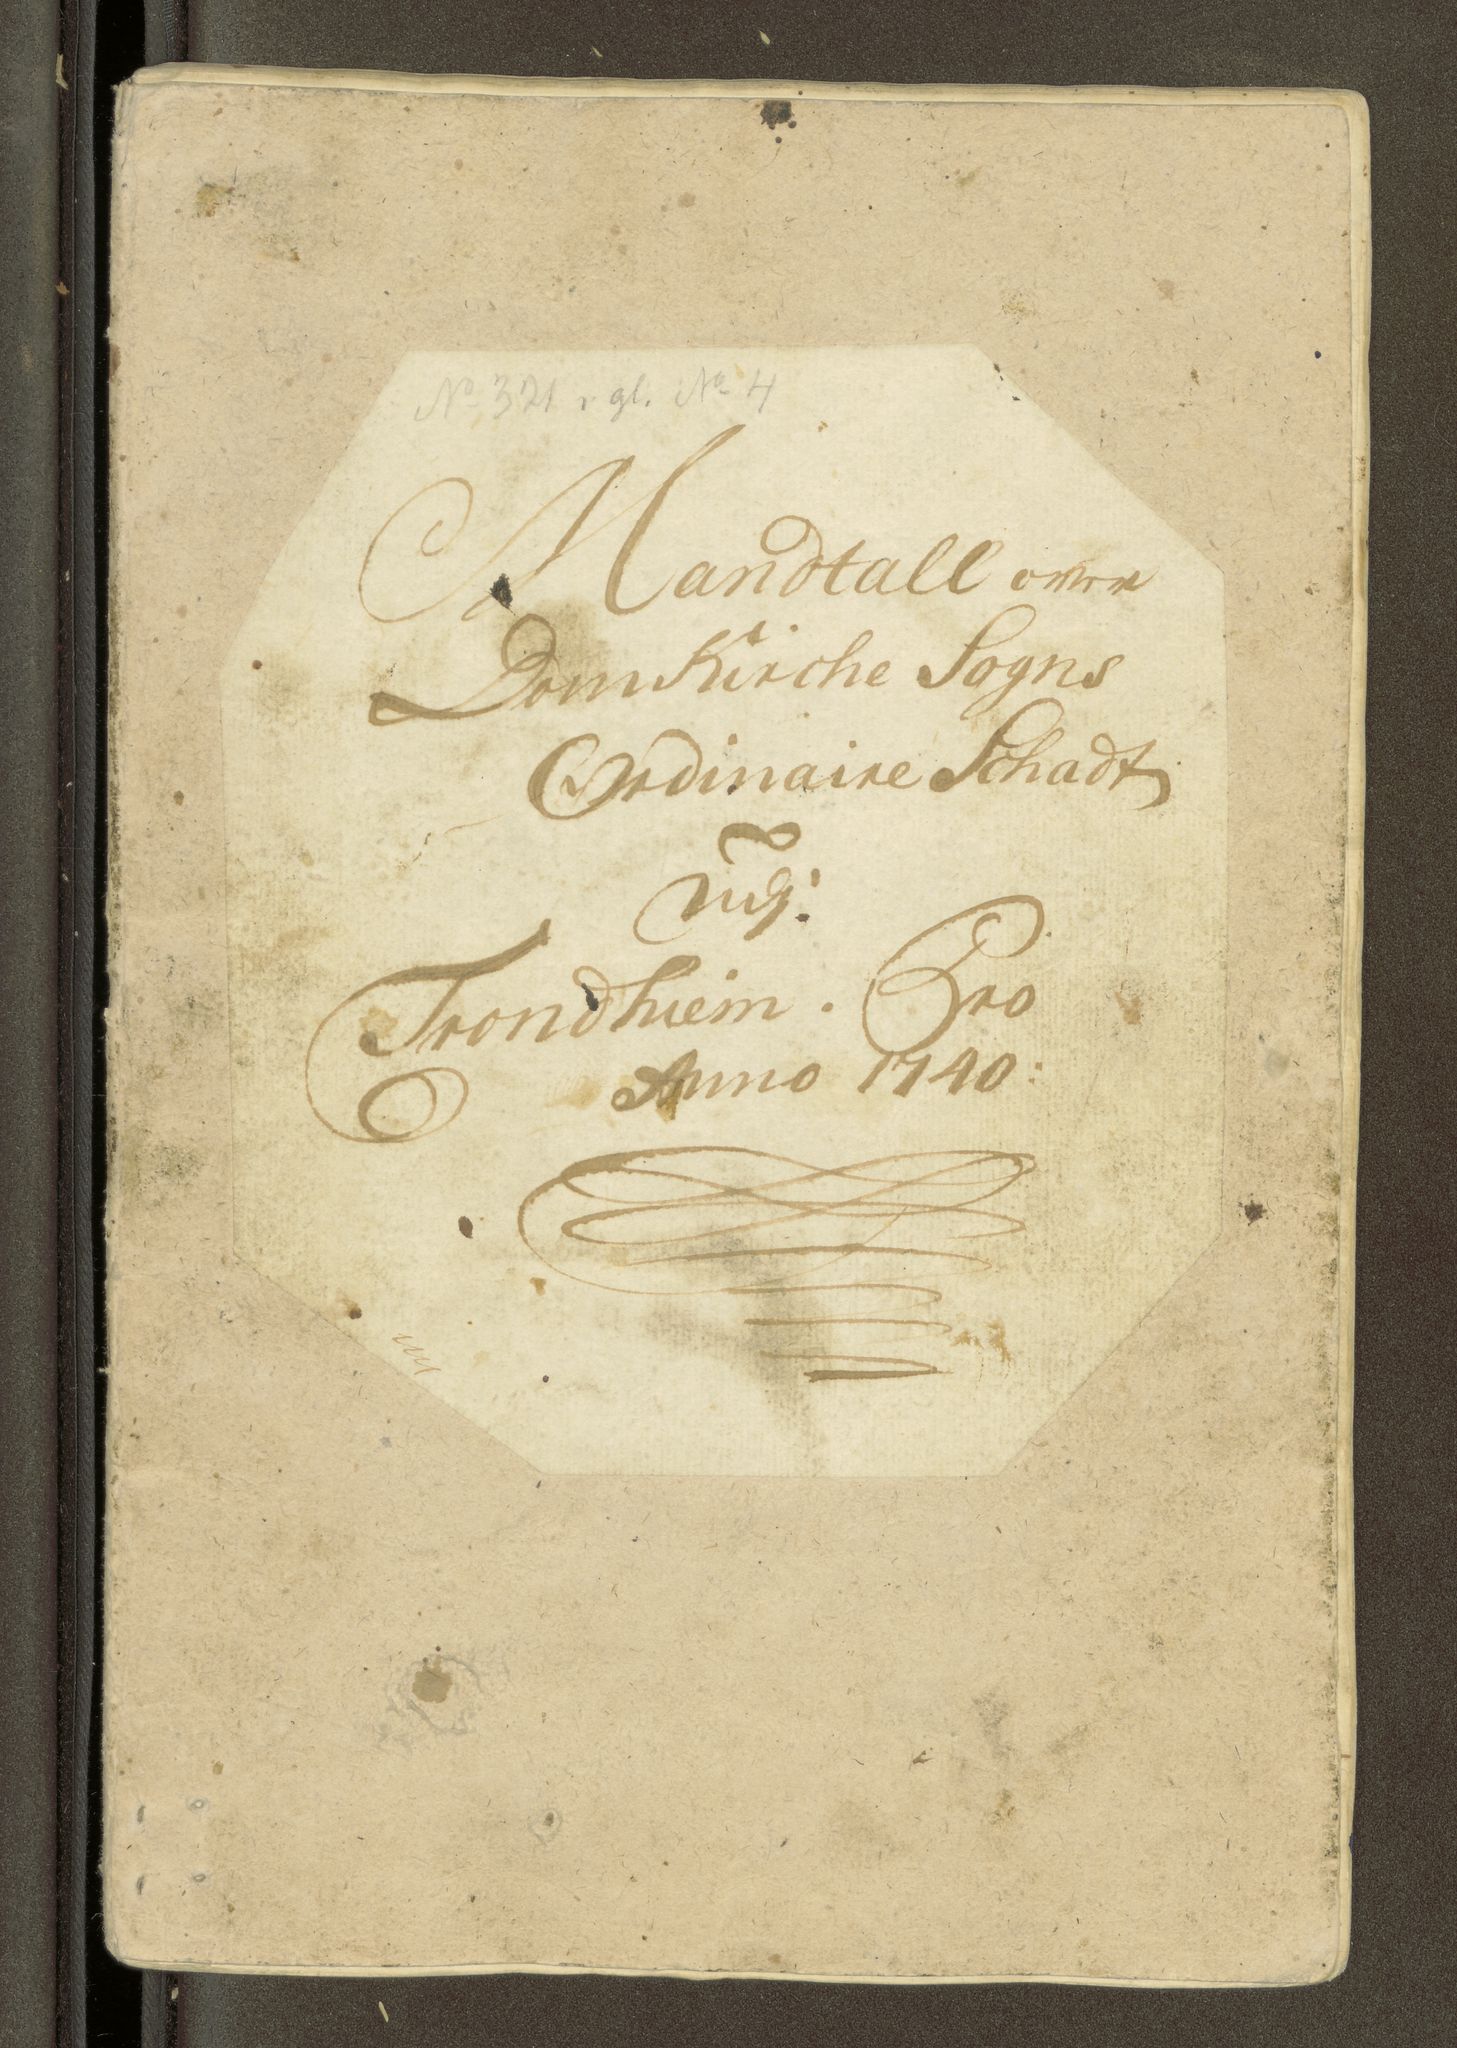 No 321 gl. No 4
Mandtall over
DomKirche Sogns
Ordinaire Schadt
Trondhiem. Pro
Anno 1740: